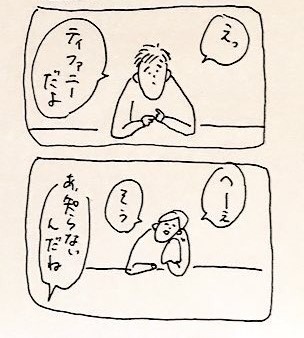 えっ
ティファニー
だよ
へーえ
そう
あ、知らない
んだね